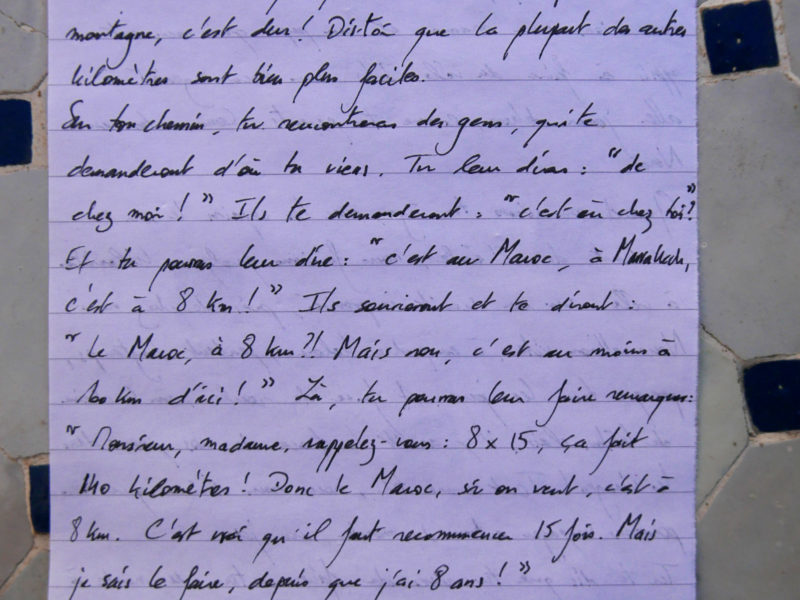 montagne, c'est dur ! Dis-toi que la plupart des autres
kilomètres sont bien plus faciles.
Sur ton chemin, tu rencontreras des gens, qui te
demanderont d'où tu viens. Tu leur diras : "de
chez moi ! " Ils te demanderont : "c'est où chez toi ?"
Et tu pourras leur dire : "c'est au Maroc, à Marrakech,
c'est à 8 km ! " Ils souriront et te diront :
" Le Maroc, à 8 km ?! Mais non, c'est au moins à
100 km d'ici ! " Là, tu pourras leur faire remarquer :
" Monsieur, madame, rappelez-vous : 8 x 15, ça fait
140 kilomètres ! Donc le Maroc, si on veut, c'est à
8 km. C'est vrai qu'il faut recommencer 15 fois. Mais
je sais le faire, depuis que j'ai 8 ans ! "